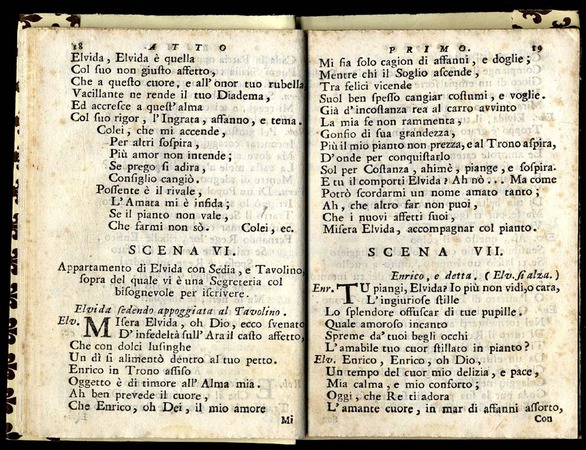 18 ATTO
Elvida, Elvida è quella
Col suo non giusto affetto,
Che a questo cuore, e all'onor tuo rubella
Vacillante ne rende il tuo Diadema,
Ed accresce a quest'alma
Col suo rigor, l'Ingrata, affanno, e tema.
Colei, che mi accende,
Per altri sospira,
Più amor non intende;
Se prego si adira,
Consiglio cangiò.
Possente è il rivale,
L'Amata mi è infida;
Se il pianto non vale,
Che farmi non sò. Colei, ec.
SCENA VI.
Appartamento di Elvida con Sedia, e Tavolino,
sopra del quale vi è una Segreteria col
bisognevole per iscrivere.
Elvida sedendo appoggiata al Tavolino.
Elv. Misera Elvida, oh Dio, ecco svenato
D'infedeltà sull'Ara il casto affetto,
Che con dolci lusinghe
Un dì si alimentò dentro al tuo petto.
Enrico in Trono assiso
Oggetto è di timore all'Alma mia.
Ah ben prevede il cuore,
Che Enrico, oh Dei, il mio amore
Mi
PRIMO. 19
Mi sia solo cagion di affanni, e doglie;
Mentre chi il Soglio ascende,
Tra felici vicende
Suol ben spesso cangiar costumi, e voglie.
Già d'incostanza rea al carro avvinto
La mia fe non rammenta,
Gonfio di sua grandezza,
Più il mio pianto non prezza, e al Trono aspira,
D'onde per conquistarlo
Sol per Costanza, ahimè, piange, e sospira.
E tu il comporti Elvida? Ah nò... Ma come
Potrò scordarmi un nome amato tanto;
Ah, che altro far non puoi,
Che i nuovi affetti suoi,
Misera Elvida, accompagnar col pianto.
SCENA VII.
Enrico, e detta. (Elv. si alza.)
Enr. TU piangi, Elvida? Io più non vidi, o cara,
L'ingiuriose stille
Lo splendore offuscar di tue pupille.
Quale amoroso incanto
Spreme da' tuoi begli occhi
L'amabile tuo cuor stillato in pianto?
Elv. Enrico, Enrico, oh Dio,
Un tempo del cuor mio delizia, e pace,
Mia calma, e mio conforto;
Oggi, che Re ti adora
L'amante cuore, in mar di affanni assorto,
Con